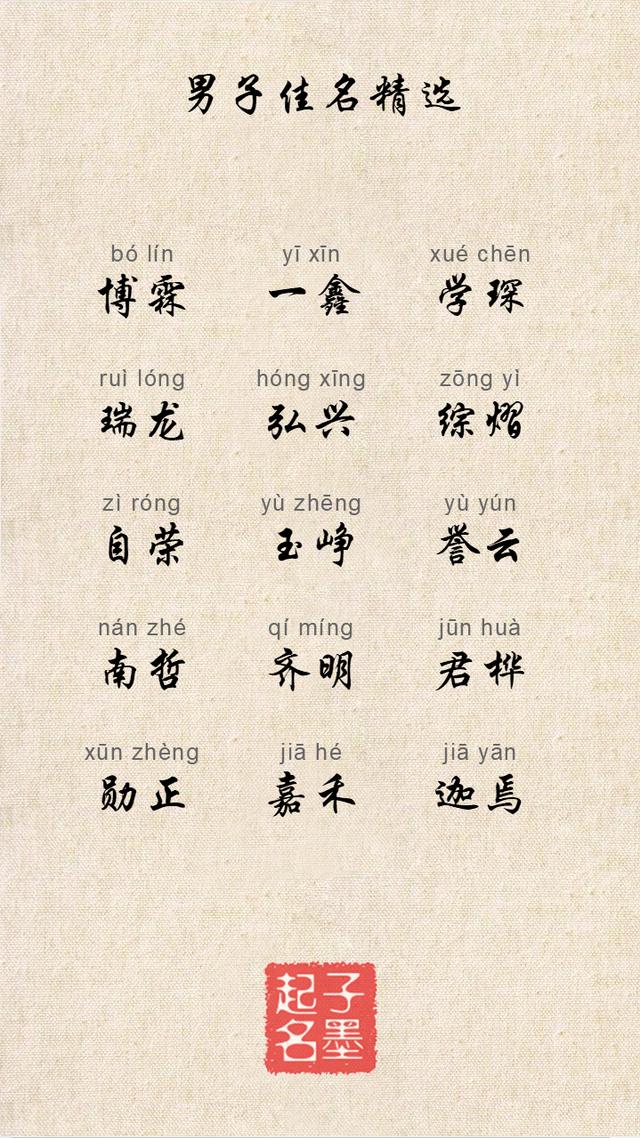 男子佳名精选
bó lín yī xīn xué chēn
博霖 一鑫 学琛
ruì lóng hóng xīng zōng yì
瑞龙 弘兴 综熠
zì róng yù zhēng yù yún
自荣 玉峥 誉云
nán zhé qí míng jūn huà
南哲 齐明 君桦
xūn zhèng jiā hé jiā yān
勋正 嘉禾 迦焉
子墨
起名